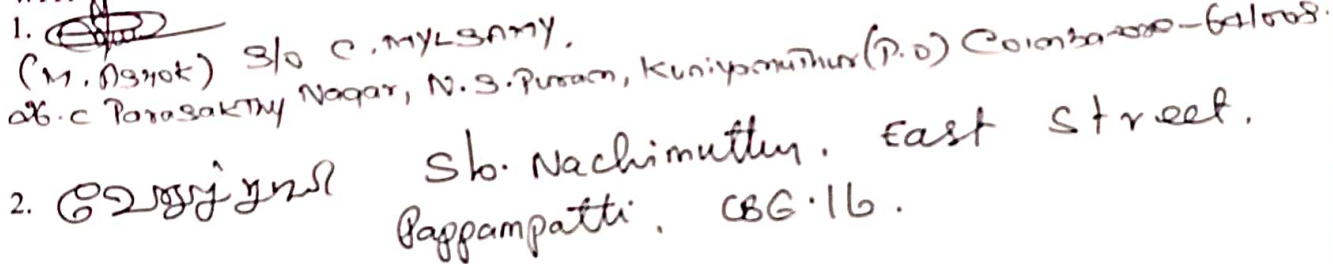 1.
(M. Ashok) S/o C. MYLSAMY.
26.C Parasakthy Nagar, N.S.Puram, Kuniyamuthur (P.O) Coimbatore-641008.
2. S/o. Nachimuthu. East Street.
Pappampatti. CBE.16.